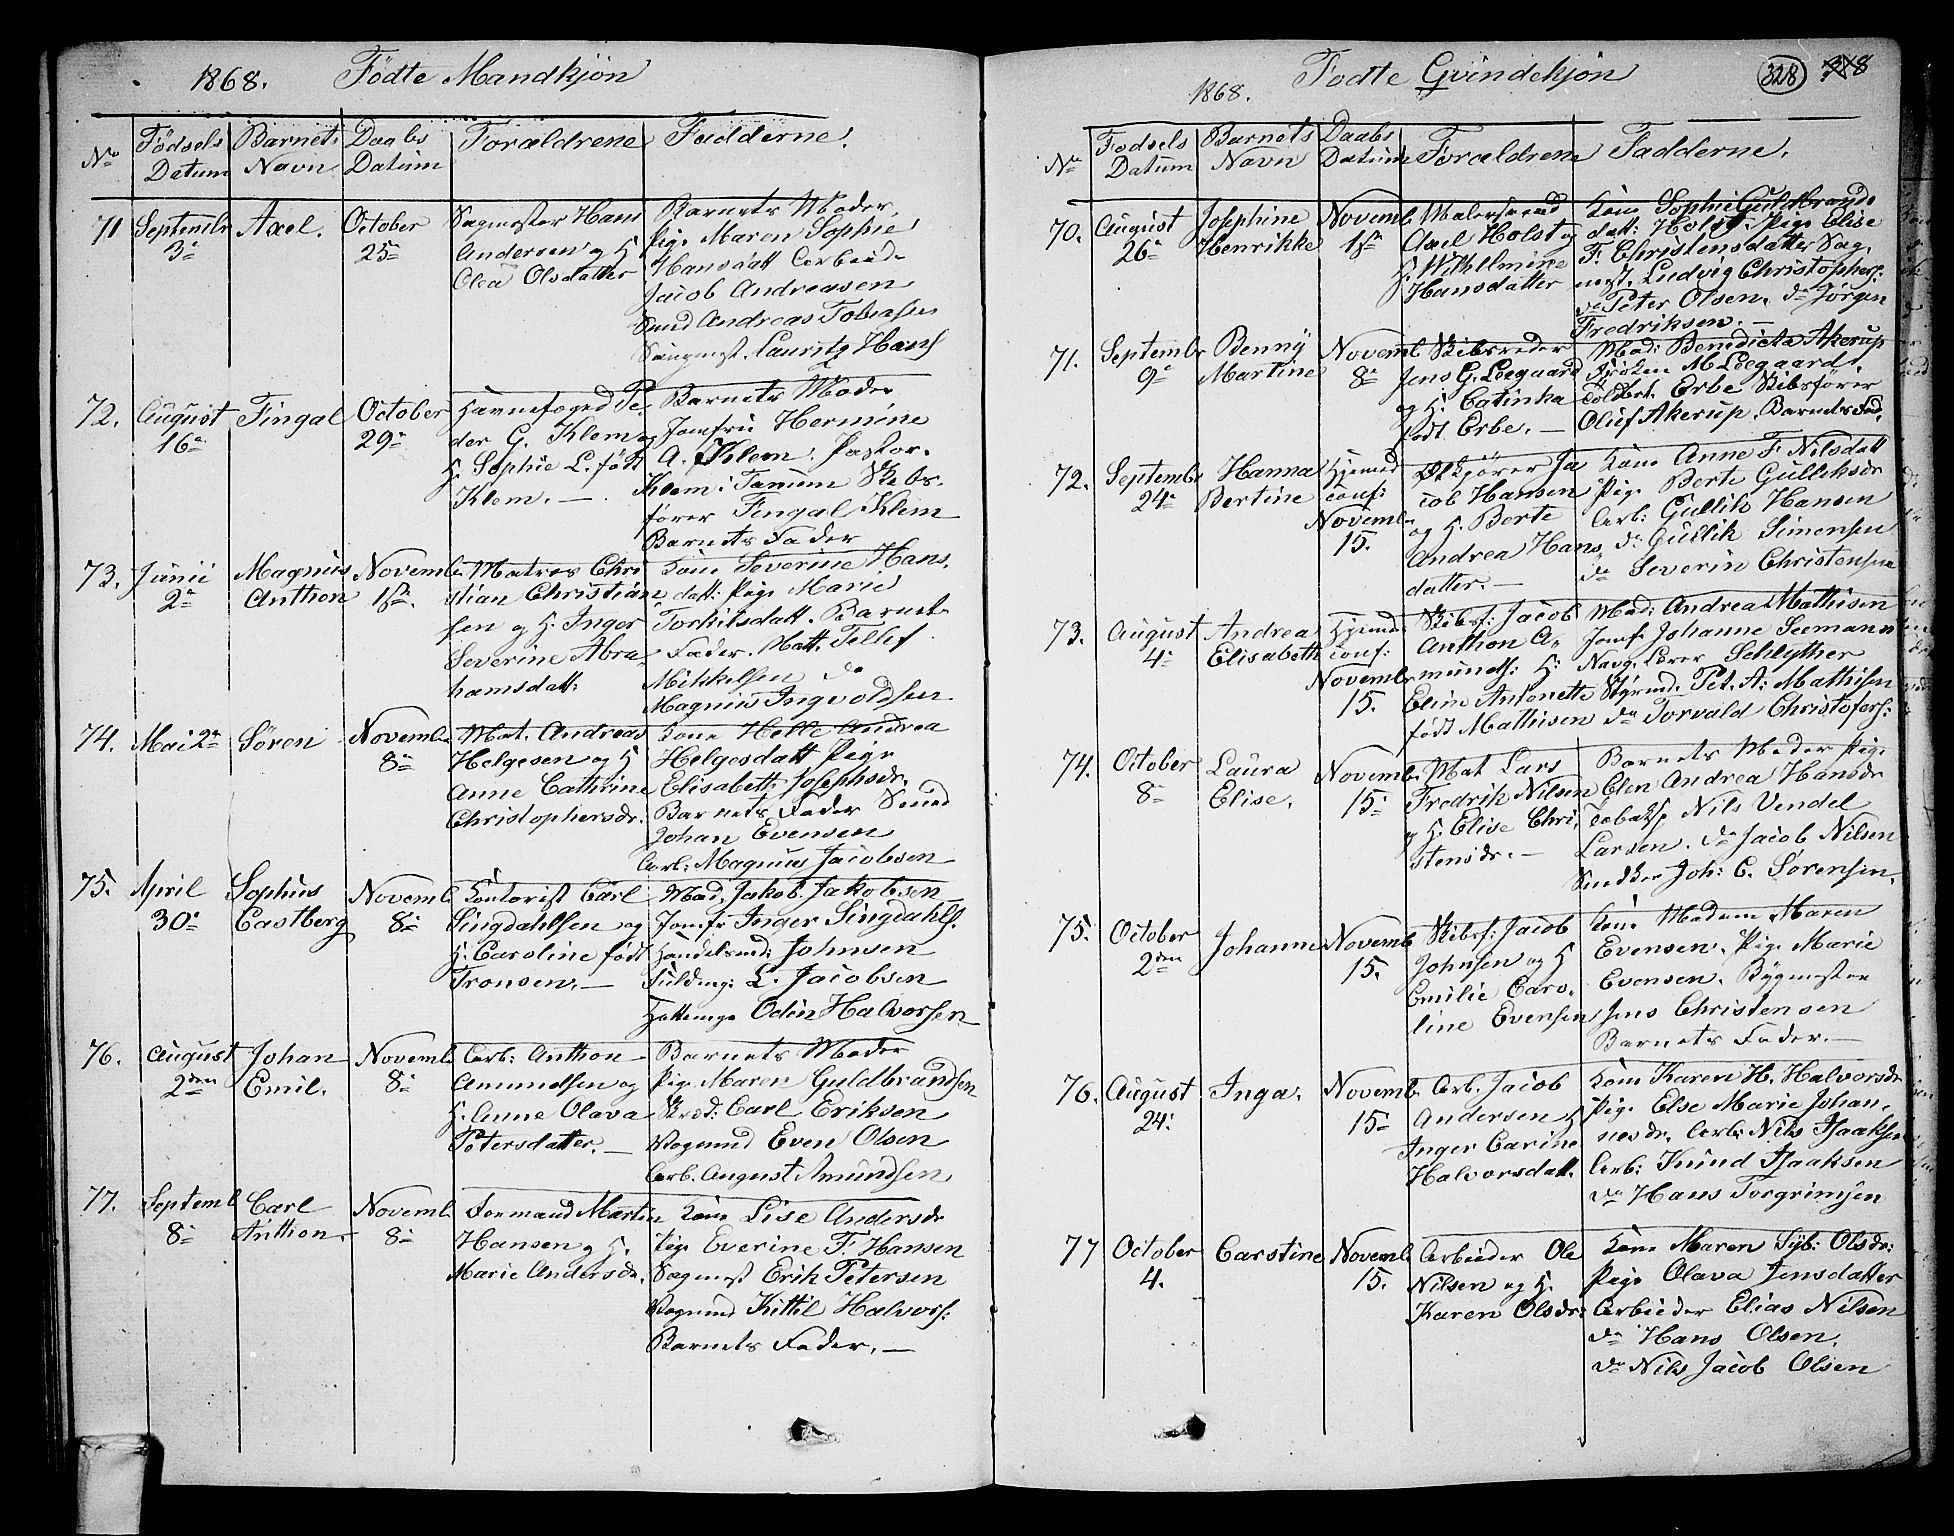 1868. Födte Mandkjön
No Födsels Datum Barnets Navn Daabs Datum Forældrene Fadderne.
71 Septembr 3e Axel. October 25e
Sagmester Hans
Andersen og H
Olea Olsdatter
Barnets Moder,
Pige Maren Sophie
Hansdatt Arbeid.
Jacob Andreasen
Smed Andreas Tobiasen
Lauritz Hans
72. August 16e Fingal October 29e
Havnefoged Pe
der G. Klem og
H. Sophie L. født
Klem. —
Barnets Moder
Jomfru Hermine
A. Klem. Pastor.
Klem i Tanum Skibs.
fører Fingal Klem
Barnets Fader
73. Junii 2e Magnus Anthon Novemb. 1ste.
Matros Chri
stian Christian
sen og H. Inger
Severine Abra
hamsdatt:
Kone Severine Hans.
datt: Pige Marie
Torkilsdatt. Barnets
Fader. Matt. Tellef
Mikkelsen do
Magnus Ingvoldsen
74. Mai 2e Sören Novemb. 8e
Mat. Andreas
Helgesen og H
Anne Cathrine
Christophersdr.
Kone Helle Andrea
Helgesdatt Pige
Elisabeth Josephsdr.
Barnets Fader Smed
Johan Evensen
Arb: Magnus Jacobsen
75. April 30e Sophus Castberg Novemb. 8e
Kontorist Carl
Singdahlsen og
H. Caroline født
Tronsen. —
Mad. Jakob. Jakobsen
Jomfr Inger Singdahls.
Handelsmd: Johnsen
Fuldmg: L. Jacobsen
Odin Halvorsen
76. August 2den Johan Emil. Novemb. 8e
Arb: Anthon
Amundsen og
H. Anne Olava
Petersdatter. —
Barnets Moder
Pige Maren Guldbrandsen
Skred: Carl Eriksen
Vogmand Even Olsen
Arb. August Amundsen
77. Septemb 8e Carl Anthon. Novemb. 8e
Formand Martin
Hansen og H.
Marie Andersdr.
Kone Lise Andersdr
Pige Everine F. Hansen
Sagmest Erik Petersen
Vogmand Kittil Halvors:
Barnets Fader. —
1868. Fodte Qvindekjön 328 318
No Fodsels Datum Barnets Navn Daabs Datum Forældrene Fadderne.
70. August 26e Josephine Henrikke Novemb. 1ste
Malersvend
Axel Holst og
H. Wilhelmine
Hansdatter
Kone Sophie Guldbrands
datt: Holst. Pige Elise
F. Christensdatter Sag.
mest. Ludvig Christophers:
do Peter Olsen. do Jörgen
Fredriksen. —
71. Septembr 9e Benny Martine Novemb. 8e
Skibsreder
Jens G. Leegaard
og H. Catinka
født Erbe. —
Mad: Benedicta Akerup
Frøken M Leegaard.
Toldbet. Erbe Skibsfører
Oluf Akerup. Barnets Fad.
72. Septembr 24e Hanna Bertine Hjemed conf: Novemb. 15.
Ja
cob Hansen
og H. Berte
Andrea Hans
datter. —
Kone Anne F. Nilsdatt
Pige Berte Gulliksdr
Arb: Gullik Hansen
do Gullik Simensen
do Severin Christensen
73. August 4e Andrea Elisabeth Hjemed conf: Novemb. 15.
Skibsf: Jacob
Anthon A.
munds: H:
Eline Antonette
født Mathisen
Mad: Andrea Mathisen
Jomf. Johanne Seemann
Navg. Lærer Schlyther
Styrmd. Pet. A: Mathisen
do Torvald Christofers:
74. October 8e Laura Elise. Novemb. 15e
Mat Lars
Fredrik Nilsen
og H. Elise Chri.
stensdr. —
Barnets Moder Pige
Elen Andrea Hansdr
Tobaksp Nils Vendel
Larsen. do Jacob Nilsen
Snedker Joh: C. Sörensen.
75. October 2den Johanne Novemb. 15.
Skibsf: Jacob
Johnsen og H
Emilie Caro.
line Evensen
Kone Madam Maren
Evensen. Pige Marie
Evensen. Bygmester
Jens Christensen
Barnets Fader. —
76. August 24e Inga. Novemb. 15e
Arb. Jacob
Andersen H
Inger Carine
Halvorsdatt.
Kone Karen H. Halvorsdr
Pige Else Marie Johan.
nesdr. Arb: Nils Isaaksen
Arb: Knud Isaaksen
do Hans Torgrimsen
77 October 4. Carstine Novemb. 15.
Arbeider Ole
Nilsen og H.
Karen Olsdr.
Kone Maren Syb: Olsdr:
Pige Olava Jensdatter
Arbeider Elias Nilsen
do Hans Olsen.
do Nils Jacob Olsen